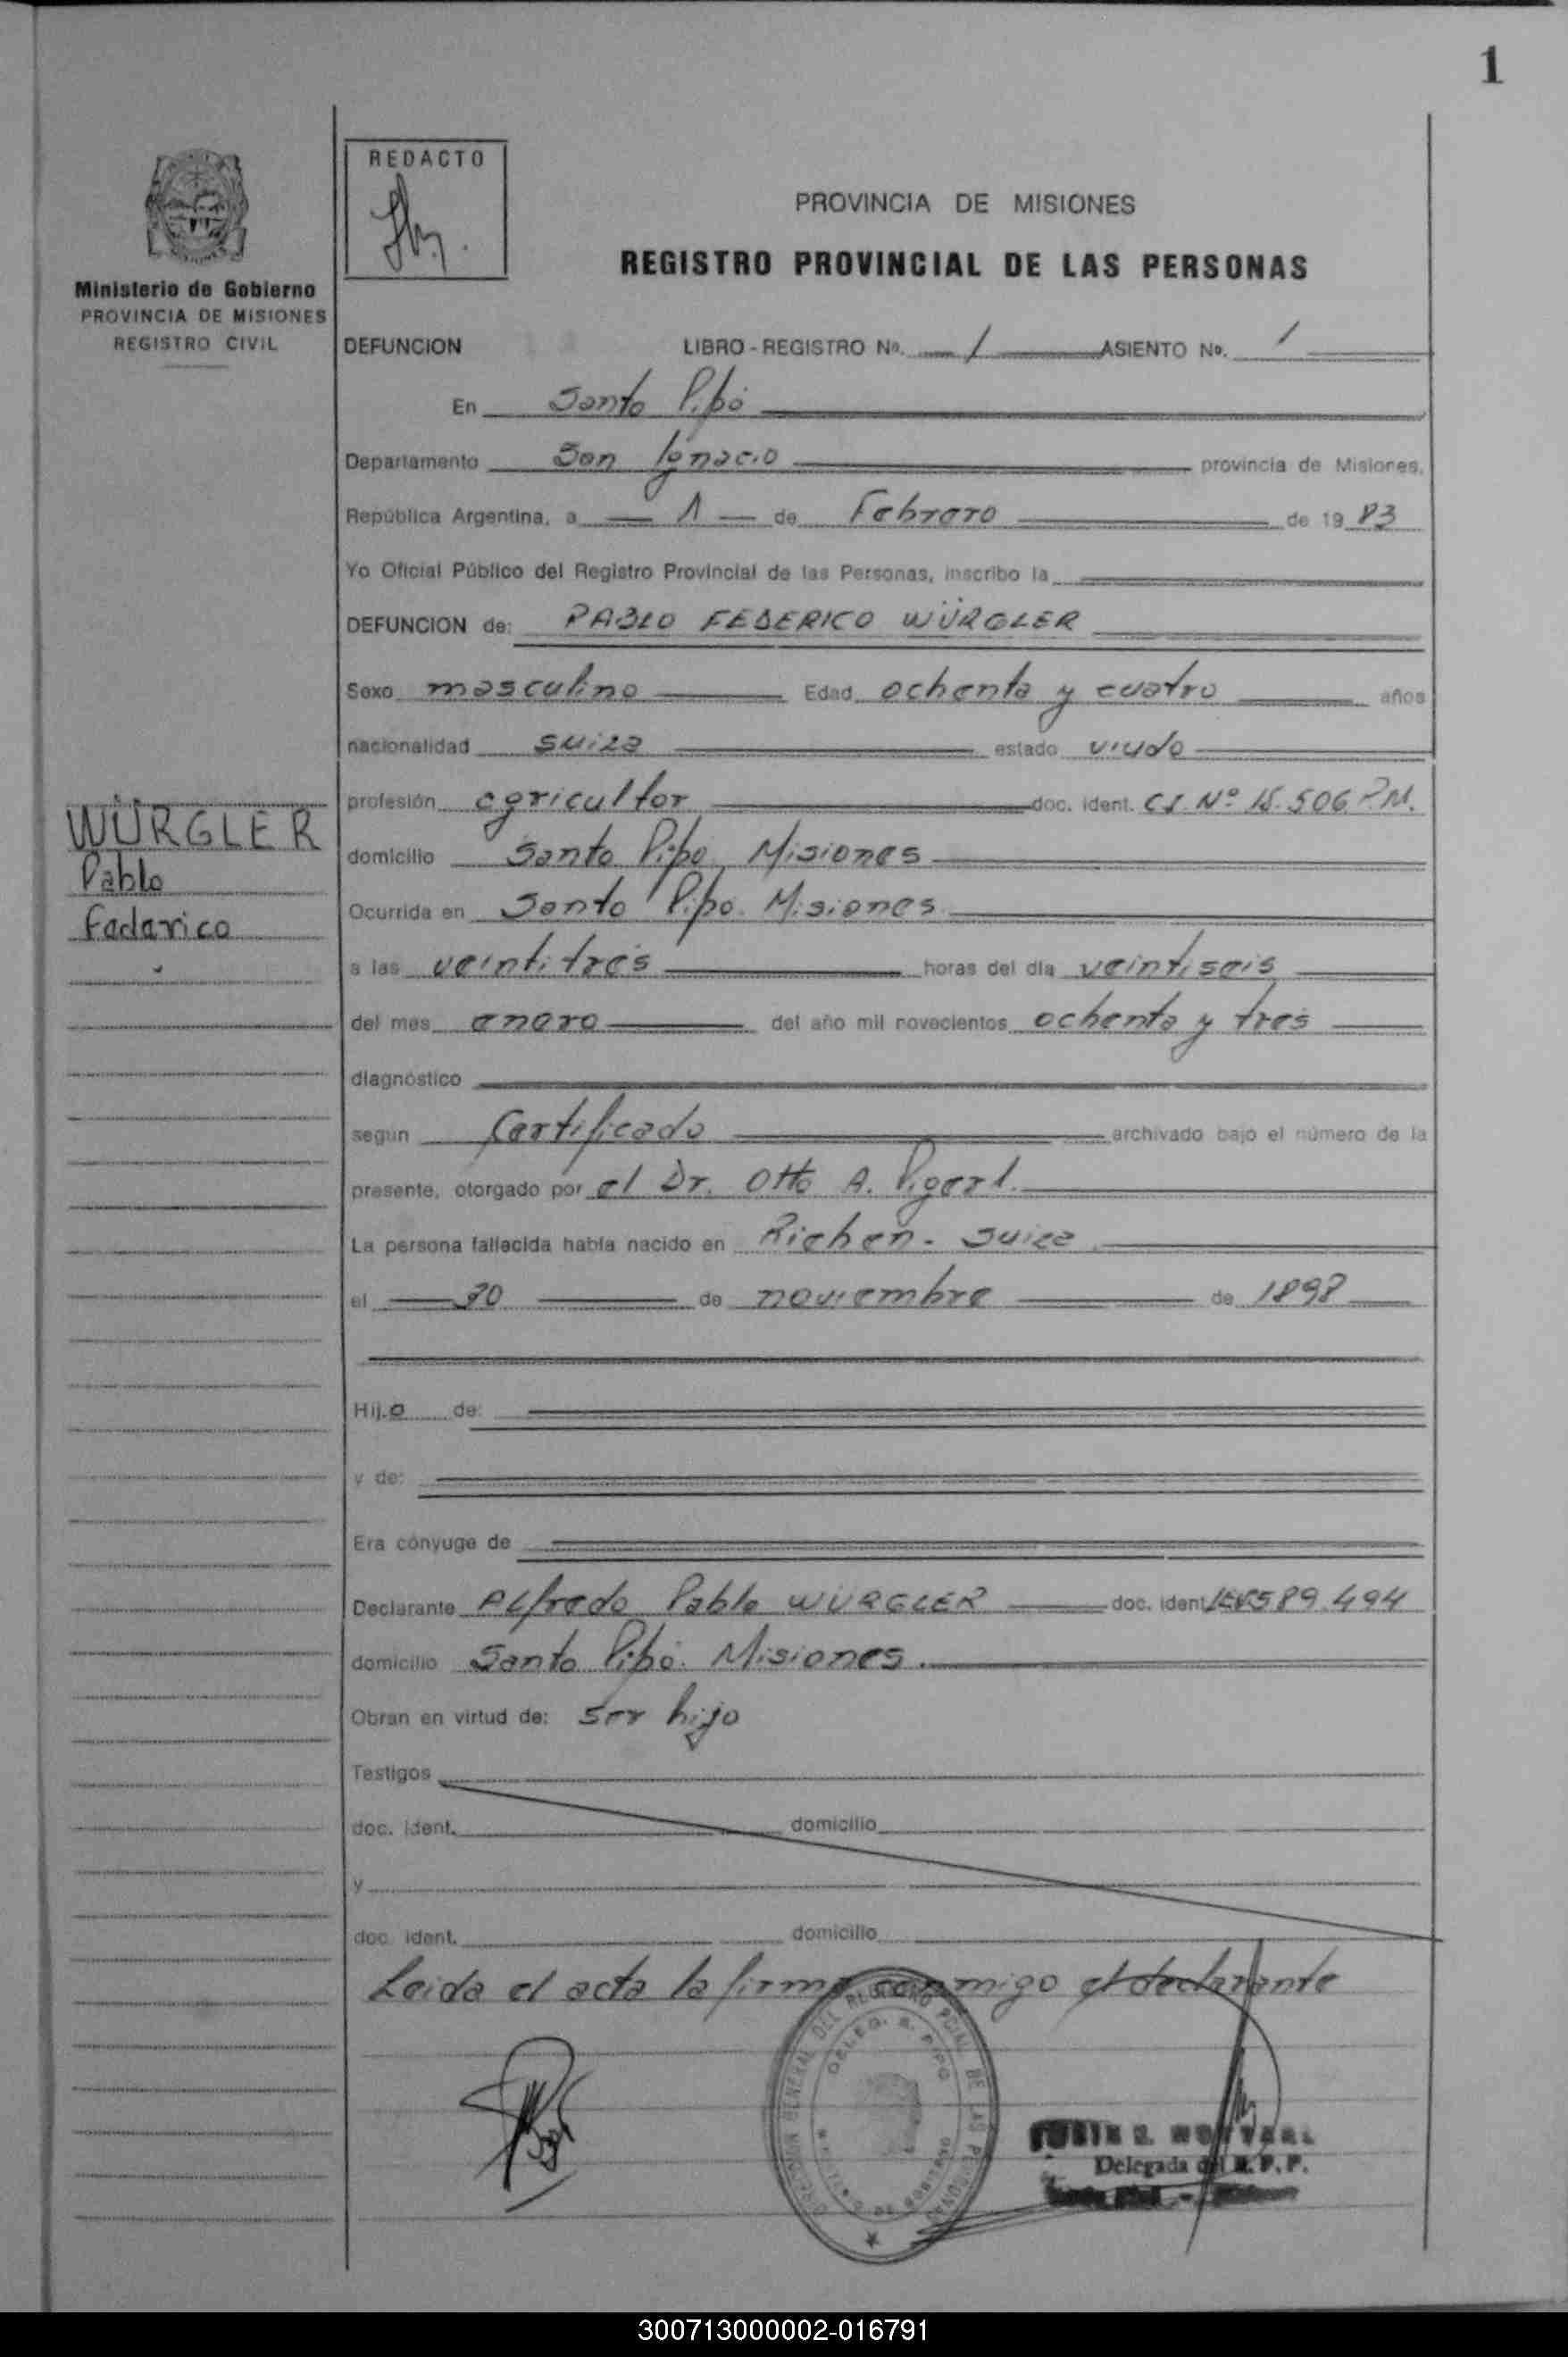 1
REDACTO
PROVINCIA DE MISIONES
REGISTRO PROVINCIAL DE LAS PERSONAS
Ministerio de Gobierno
PROVINCIA DE MISIONES
REGISTRO CIVIL
DEFUNCION LIBRO - REGISTRO No. 1 ASIENTO No. 1
En Santo Pipó
Departamento San Ignacio provincia de Misiones,
República Argentina, a 1 de Febrero de 19 83
Yo Oficial Público del Registro Provincial de las Personas, inscribo la
DEFUNCION de: PABLO FEDERICO WÜRGLER
Sexo masculino Edad ochenta y cuatro años
nacionalidad suiza estado viudo
profesión agricultor doc. ident. C.I. Nº 15.506 P.M.
WÜRGLER
Pablo
Federico
domicilio Santo Pipo, Misiones
Ocurrida en Santo Pipo. Misiones
a las veintitrés horas del día veintiseis
del mes enero del año mil novecientos ochenta y tres
diagnóstico
según Certificado archivado bajo el número de la
presente, otorgado por el Dr. Otto A. Pigerl.
La persona fallecida había nacido en Richen - Suiza
el 30 de noviembre de 1898
Hij.o de:
y de:
Era cónyuge de
Declarante Alfredo Pablo WÜRGLER doc. ident. 589.494
domicilio Santo Pipó. Misiones.
Obran en virtud de: ser hijo
Testigos
doc. ident. domicilio
y
doc. ident. domicilio
Leida el acta la firma conmigo el declarante
DIRECCION GENERAL DEL REGISTRO PCIAL. DE LAS PERSONAS
DELEG. S. PIPO
Delegada del R.P.P.
300713000002-016791